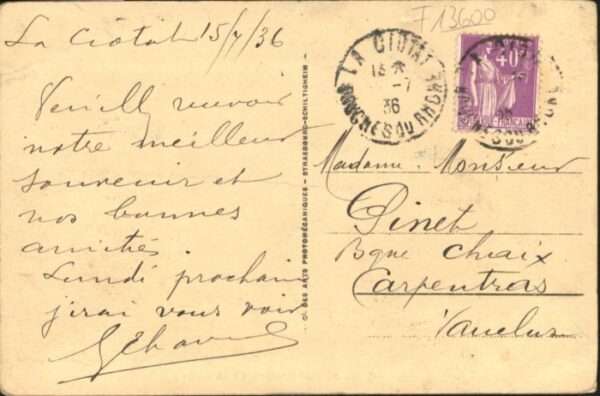 F 13600
La Ciotat 15/7/36
Veuillez recevoir
notre meilleur
souvenir et
nos bonnes
amitiés.
Lundi prochain
j'irai vous voir
LA CIOTAT
13
-7
36
BOUCHES DU RHONE
40
CIE DES ARTS PHOTOMÉCANIQUES - STRASBOURG-SCHILTIGHEIM
Madame. Monsieur
Pinet
Bque Chaix
Carpentras
Vaucluse